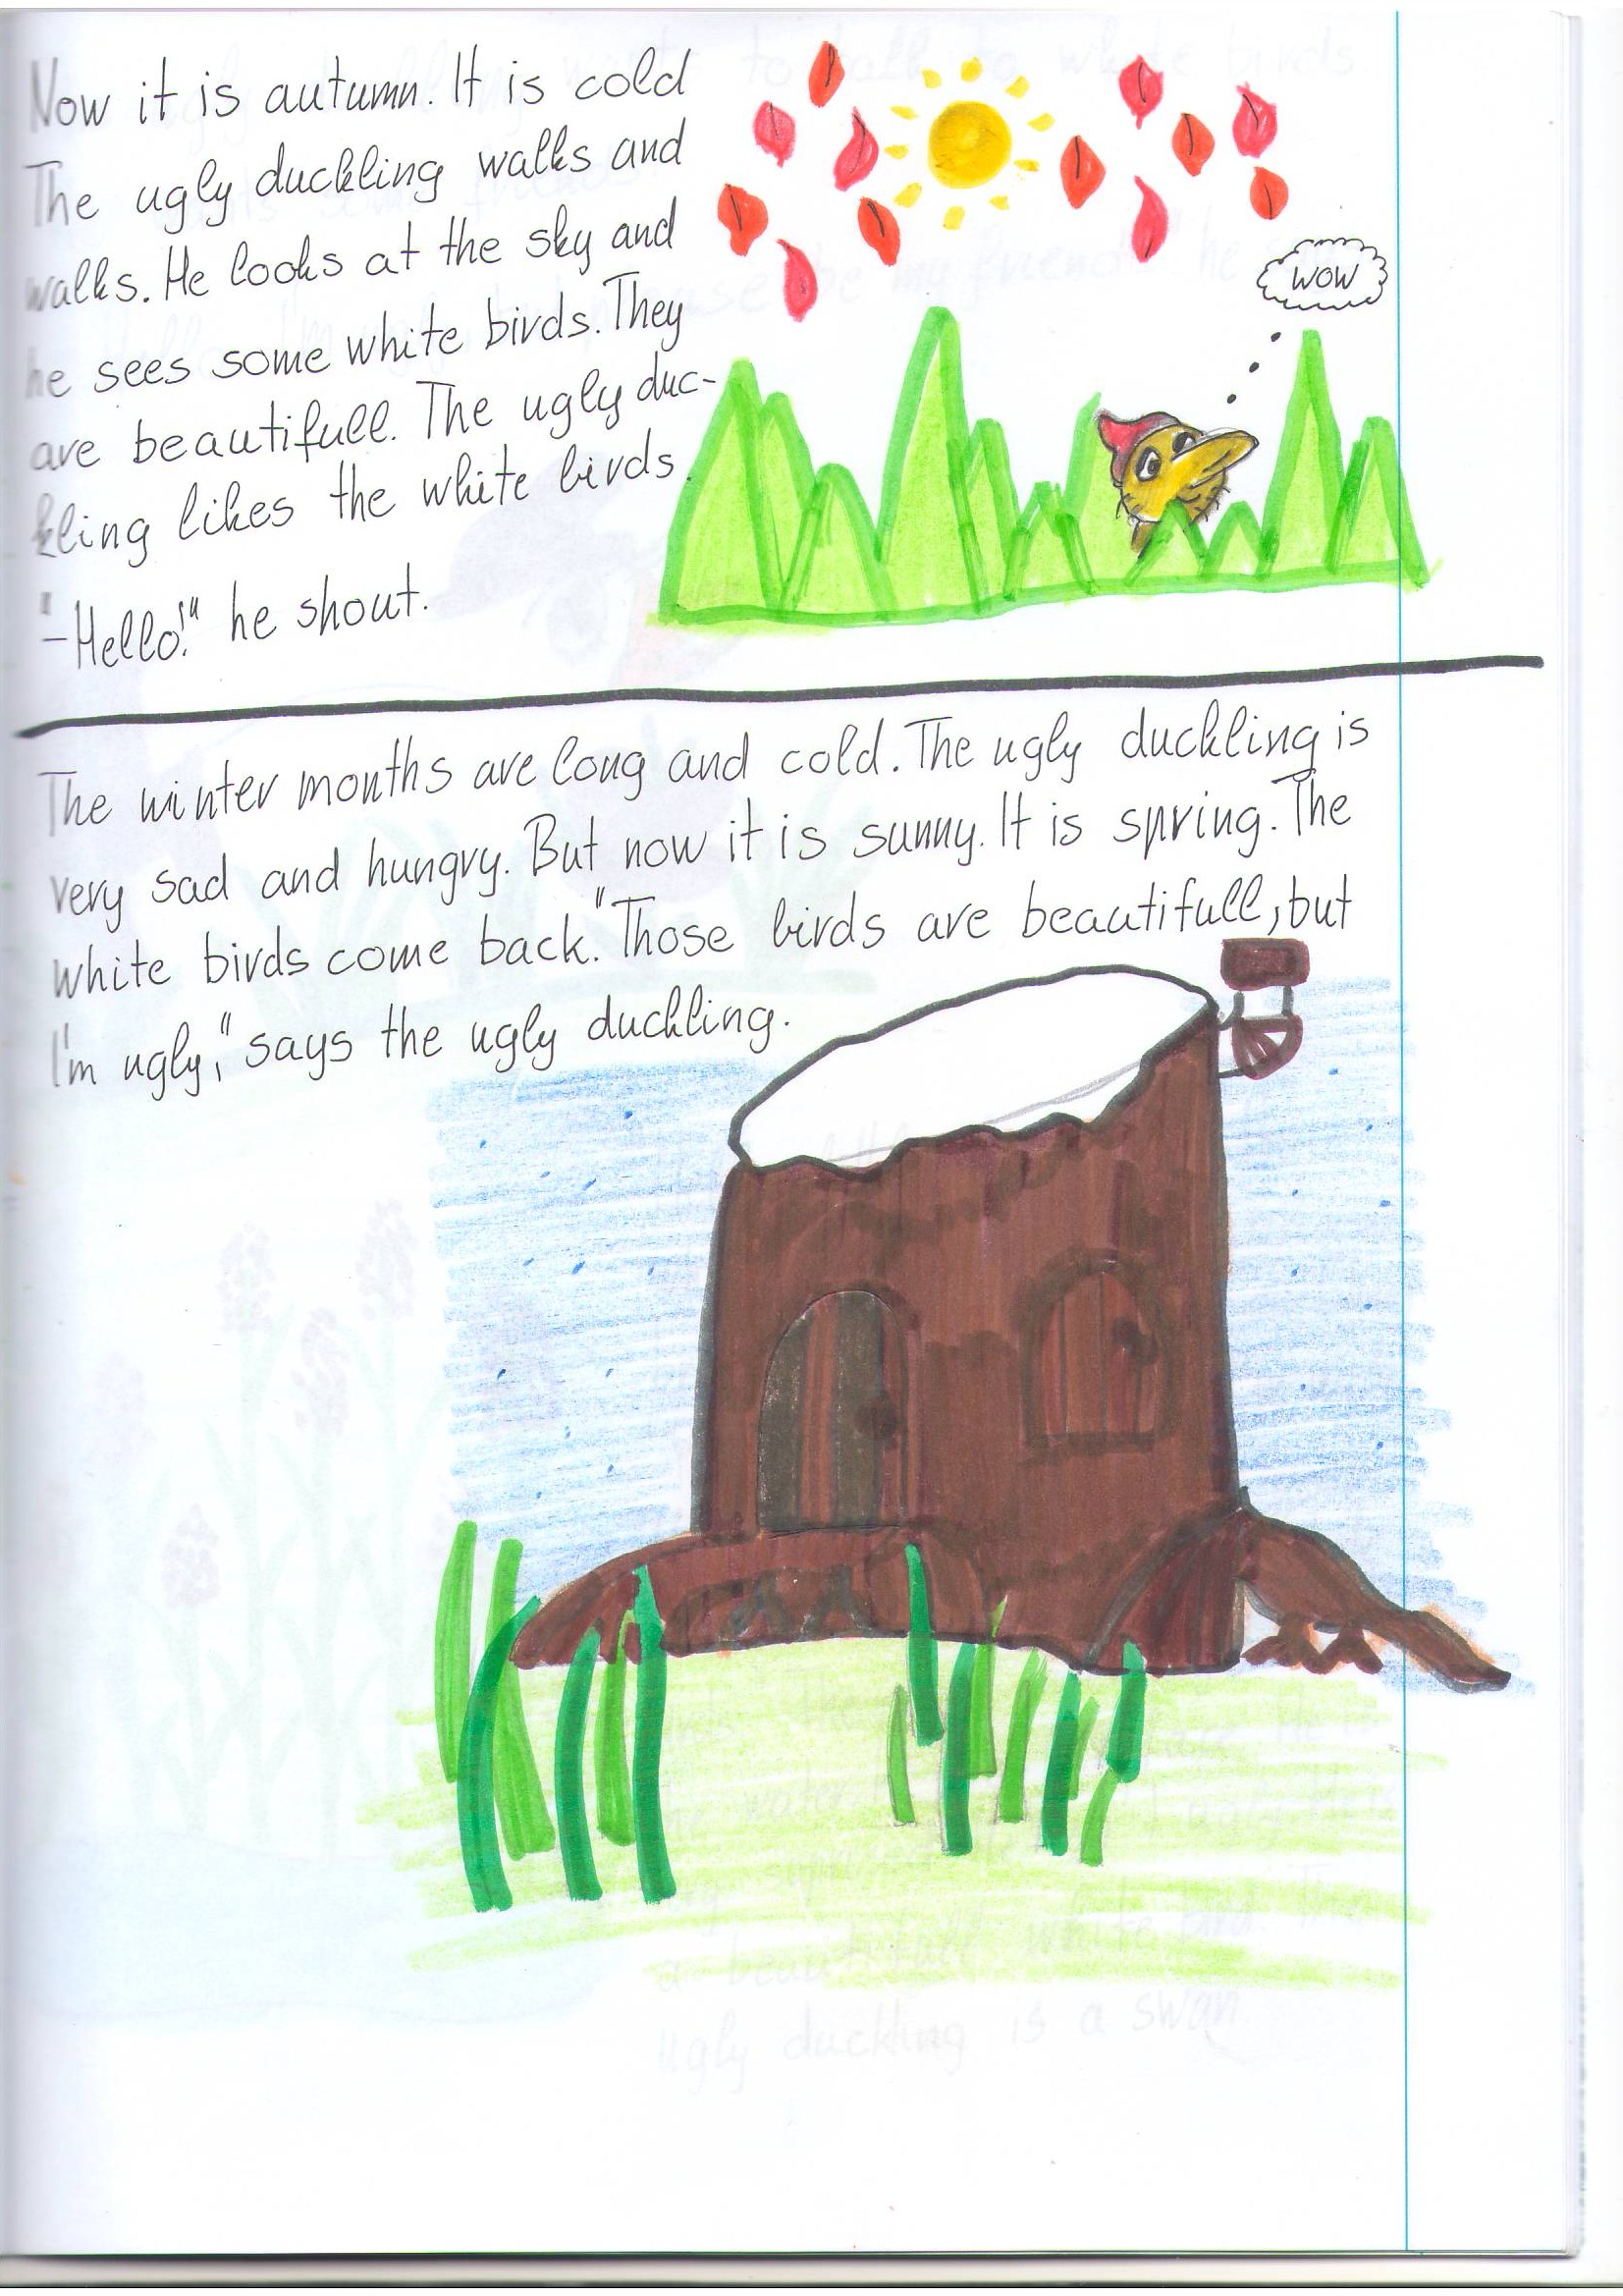 Now it is autumn. It is cold
The ugly duckling walks and
walks. He looks at the sky and
he sees some white birds. They
are beautifull. The ugly duc-
kling likes the white birds.
"-Hello!" he shout.
WOW
The winter months are long and cold. The ugly duckling is
very sad and hungry. But now it is sunny. It is spring. The
white birds come back. "Those birds are beautifull, but
I'm ugly," says the ugly duckling.
ugly duckling is a swan